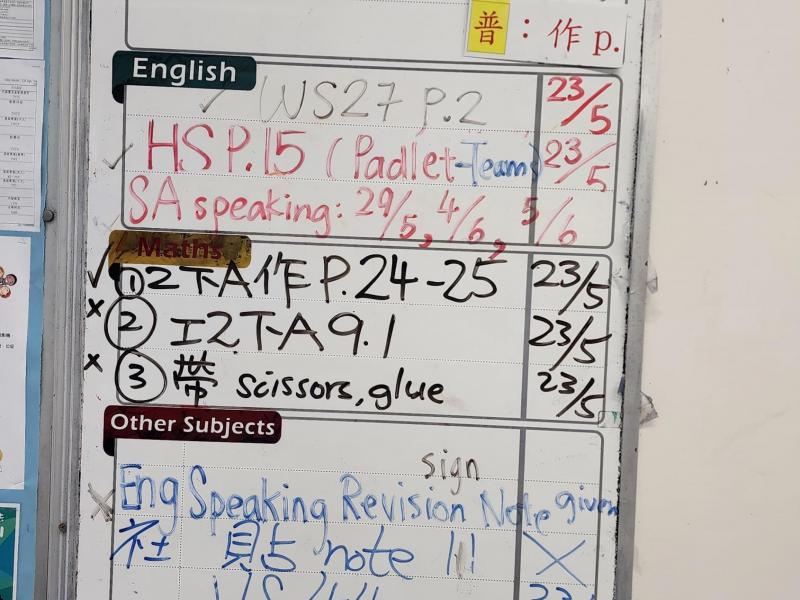 普：作 p.
English
✓ WS27 P.2 23/5
✓ HS P.15 (Padlet-Team) 23/5
SA speaking: 29/5, 4/6, 5/6
Maths
✓ ① 2下A作 P.24-25 23/5
x ② 工2下A 9.1 23/5
x ③ 帶 scissors, glue 23/5
Other Subjects
sign
x Eng Speaking Revision Note given
社 note !!! X